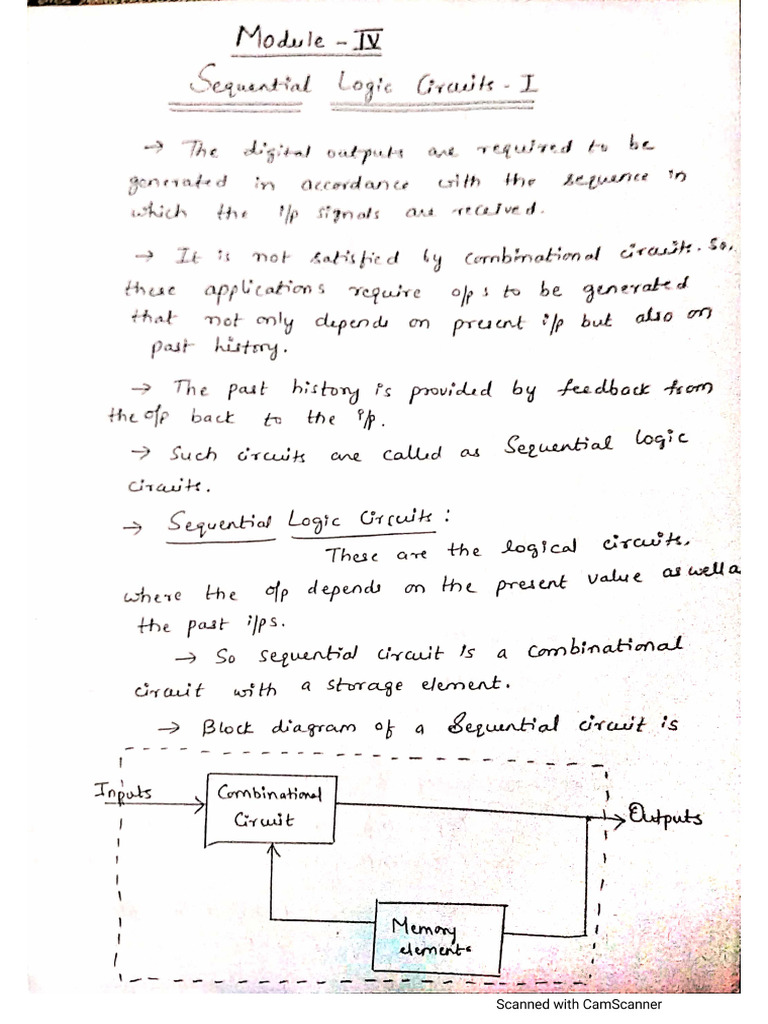 Module - IV
Sequential Logic Circuits - I
→ The digital outputs are required to be
generated in accordance with the sequence in
which the i/p signals are received.
→ It is not satisfied by combinational circuits. So,
these applications require o/p s to be generated
that not only depends on present i/p but also on
past history.
→ The past history is provided by feedback from
the o/p back to the i/p.
→ Such circuits are called as Sequential logic
circuits.
→ Sequential Logic Circuits :
These are the logical circuits,
where the o/p depends on the present value as well a
the past i/ps.
→ So sequential circuit is a combinational
circuit with a storage element.
→ Block diagram of a Sequential circuit is
Inputs
Combinational
Circuit
Outputs
Memory
elements
Scanned with CamScanner